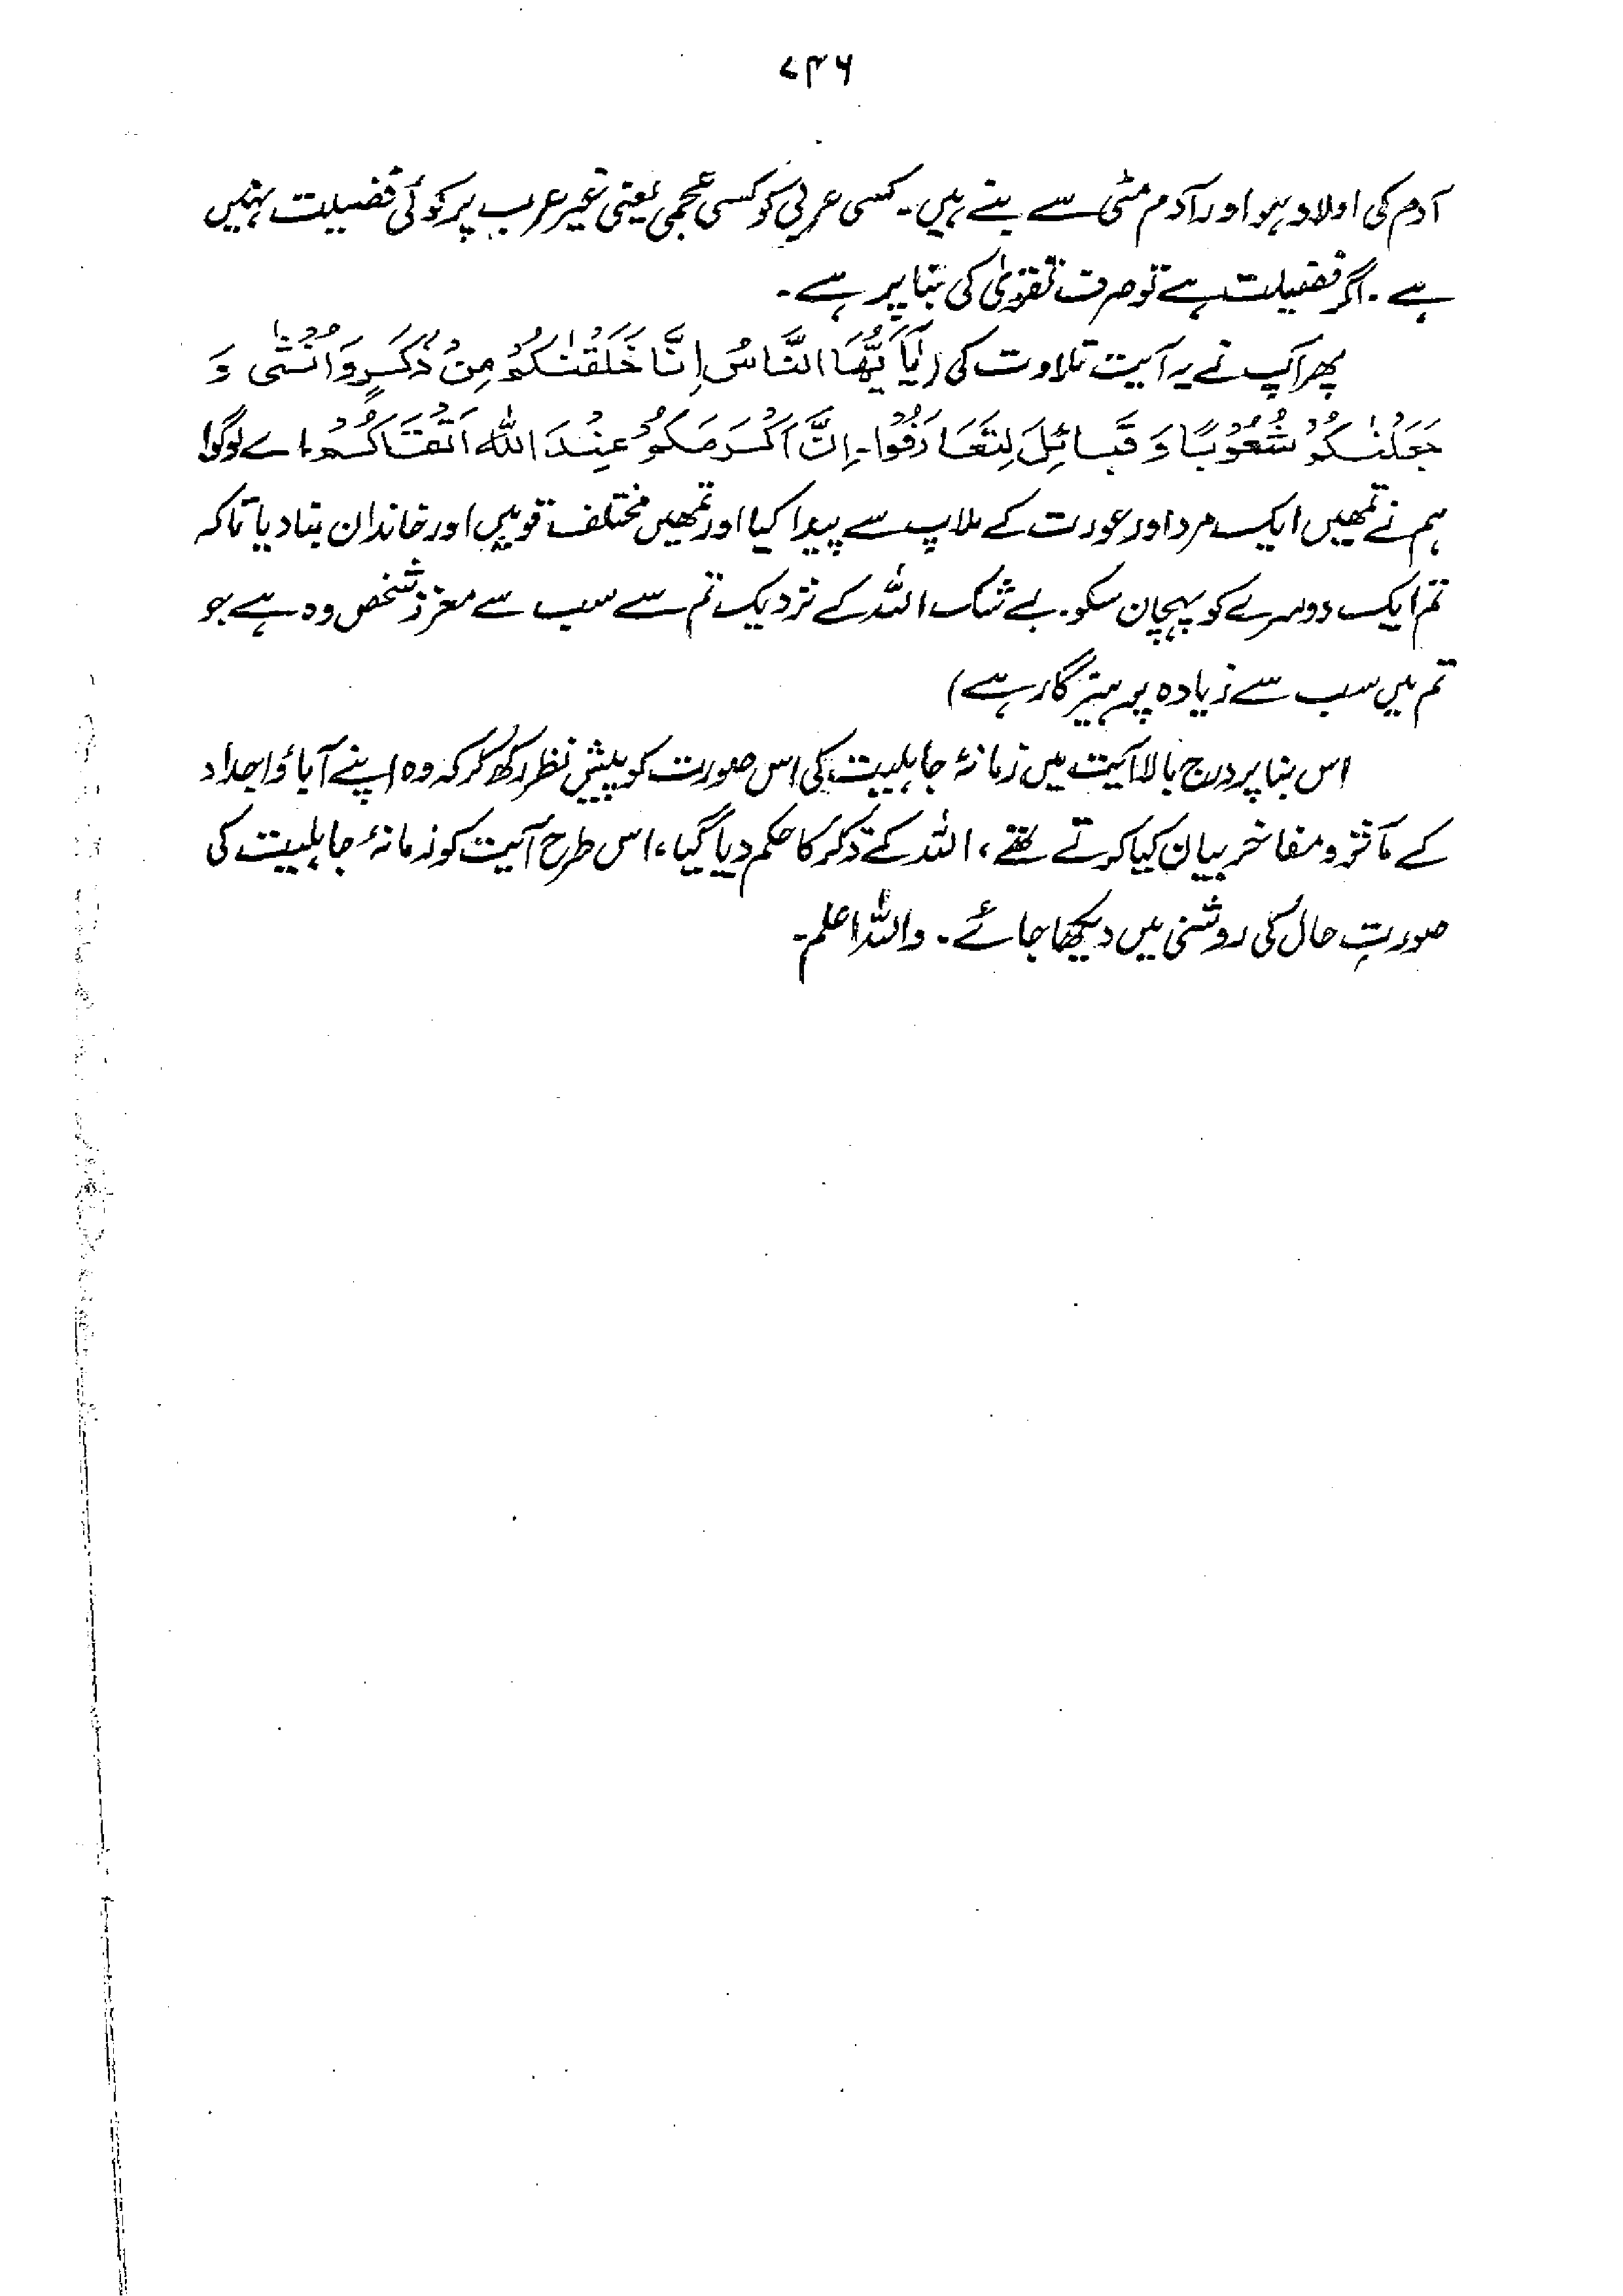 ۷۴۶
آدم کی اولاد ہو اور آدم مٹی سے بنے ہیں۔ کسی عربی کو کسی عجمی یعنی غیر عرب پر کوئی فضیلت نہیں
ہے۔ اگر فضیلت ہے تو صرف تقویٰ کی بنا پر ہے۔
پھر آپ نے یہ آیت تلاوت کی (یٰٓاَیُّھَا النَّاسُ اِنَّا خَلَقْنٰکُمْ مِنْ ذَکَرٍ وَاُنْثٰی وَ
جَعَلْنٰکُمْ شُعُوْبًا وَ قَبَائِلَ لِتَعَارَفُوْا۔ اِنَّ اَکْرَمَکُمْ عِنْدَ اللّٰہِ اَتْقَاکُمْ، اے لوگو!
ہم نے تمھیں ایک مرد اور عورت کے ملاپ سے پیدا کیا اور تمھیں مختلف قومیں اور خاندان بنا دیا تاکہ
تم ایک دوسرے کو پہچان سکو۔ بے شک اللہ کے نزدیک تم سے سب سے معزز شخص وہ ہے جو
تم میں سب سے زیادہ پرہیزگار ہے)
اس بنا پر درج بالا آیت میں زمانۂ جاہلیت کی اس صورت کو پیش نظر رکھ کر کہ وہ اپنے آباؤ اجداد
کے مآثر و مفاخر بیان کیا کرتے تھے، اللہ کے ذکر کا حکم دیا گیا، اس طرح آیت کو زمانۂ جاہلیت کی
صورتِ حال کی روشنی میں دیکھا جائے۔ واللہ اعلم۔